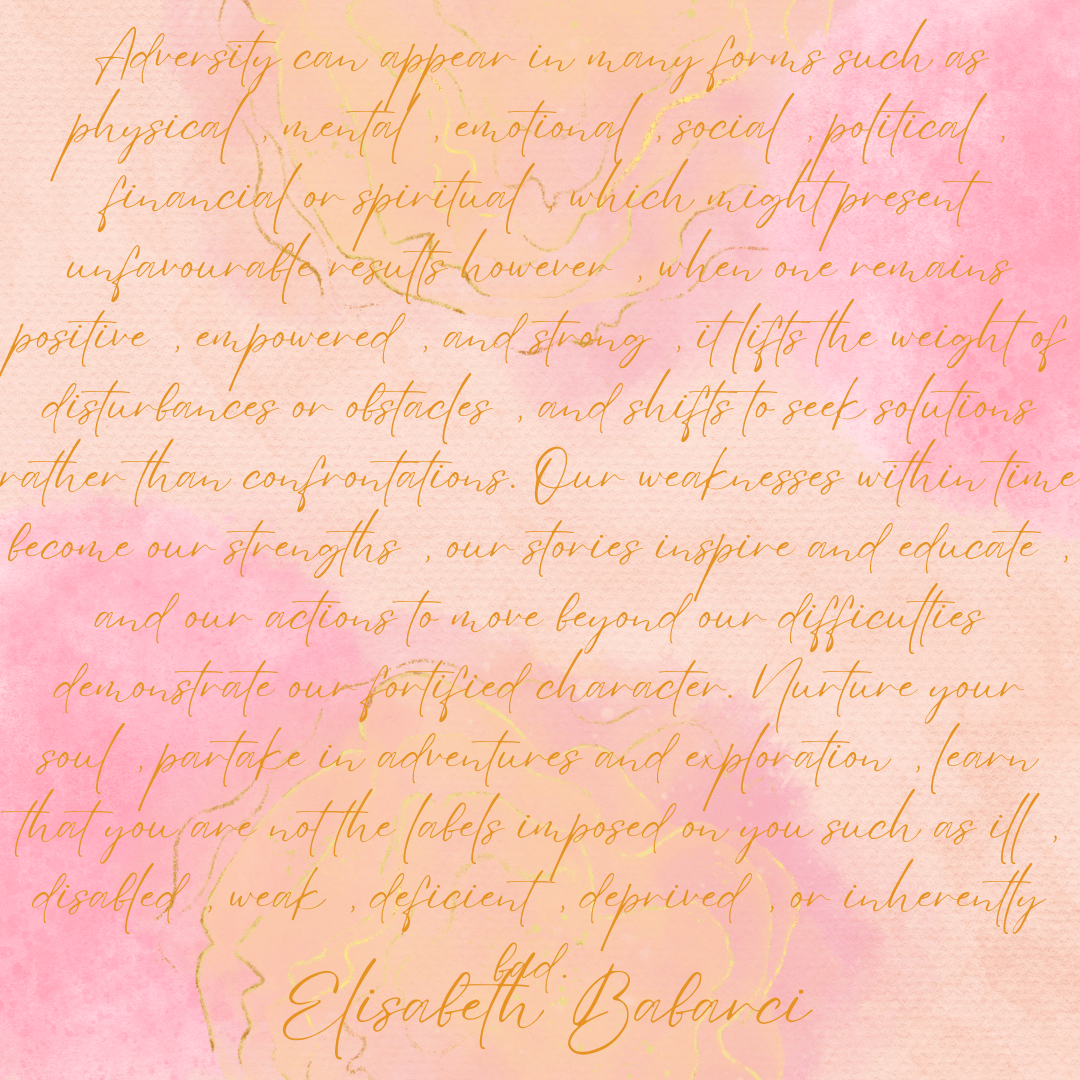 Adversity can appear in many forms such as
physical , mental , emotional , social , political ,
financial or spiritual , which might present
unfavourable results however , when one remains
positive , empowered , and strong , it lifts the weight of
disturbances or obstacles , and shifts to seek solutions
rather than confrontations. Our weaknesses within time
become our strengths , our stories inspire and educate ,
and our actions to move beyond our difficulties
demonstrate our fortified character. Nurture your
soul , partake in adventures and exploration , learn
that you are not the labels imposed on you such as ill ,
disabled , weak , deficient , deprived , or inherently
bad.
Elisabeth Babarci